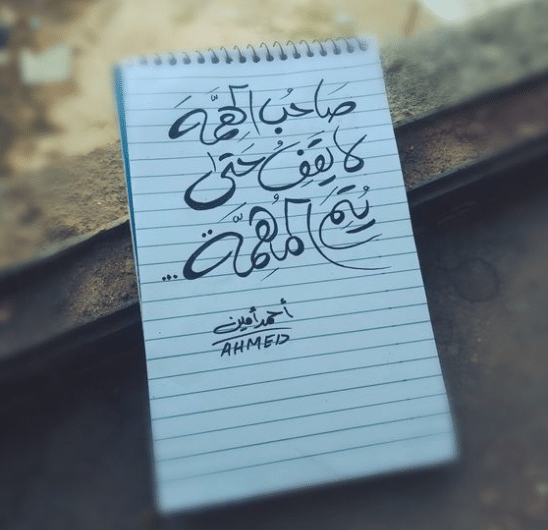 صَاحبُ الهِمَّة
لا يَقفُ حَتى
يُتِمَ المُهِمَّة...
أحمد أمين
AHMED